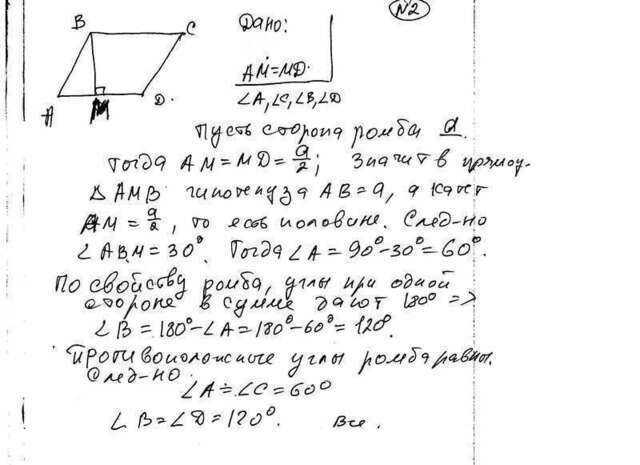 N2
B C
Дано:
AM=MD.
A M D.
∠A, ∠C, ∠B, ∠D
Пусть сторона ромба a.
тогда AM = MD = a/2; значит в прямоу-
Δ AMB гипотенуза AB = a, а катет
AM = a/2, то есть половине. След-но
∠ABM = 30°. Тогда ∠A = 90°-30° = 60°.
По свойству ромба, углы при одной
стороне в сумме дают 180° =>
∠B = 180° - ∠A = 180° - 60° = 120°.
Противоположные углы ромба равны.
След-но
∠A = ∠C = 60°
∠B = ∠D = 120°. Все.